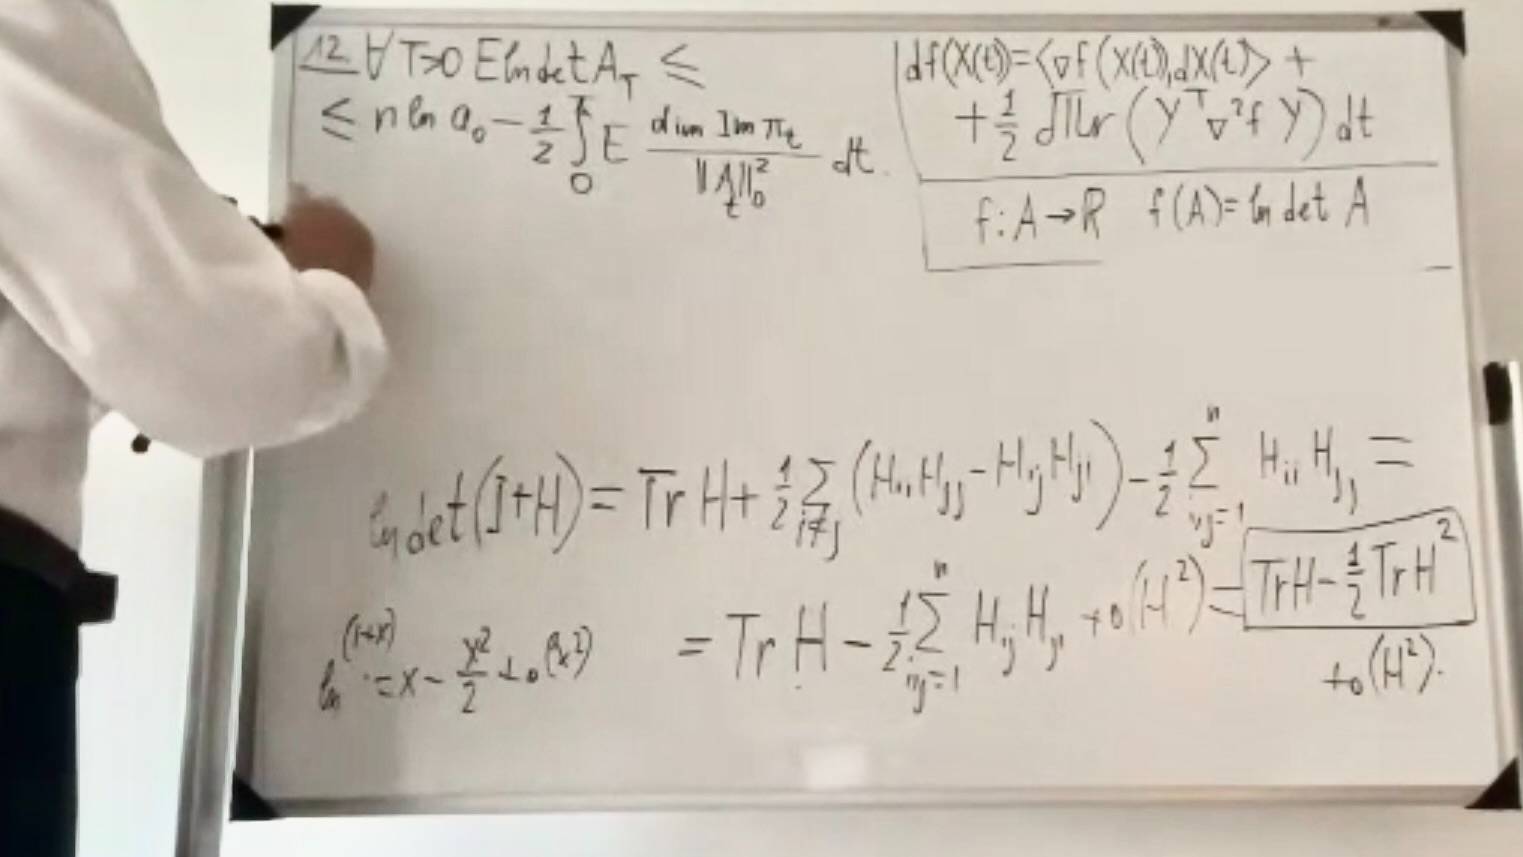 12. ∀ T>0 E ln det A_T ≤
≤ n ln a_0 − 1/2 ∫_0^T E dim Im π_t / ‖A_t‖_0^2 dt.
df(X(t)) = ⟨∇f(X(t)), dX(t)⟩ +
+ 1/2 Tr (Y^T ∇^2 f Y) dt
f: A → R f(A) = ln det A
ln det(I+H) = Tr H + 1/2 Σ_{i≠j} (H_ii H_jj − H_ij H_ji) − 1/2 Σ_{i,j=1}^n H_ii H_jj =
= Tr H − 1/2 Σ_{i,j=1}^n H_ij H_ji + o(H^2) = Tr H − 1/2 Tr H^2
+ o(H^2).
ln (1+x) = x − x^2/2 + o(x^2)